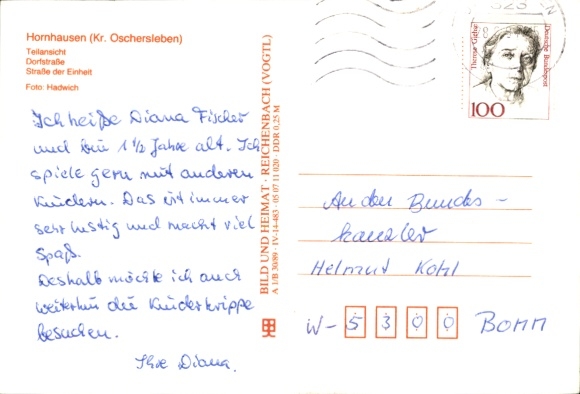 Hornhausen (Kr. Oschersleben)
Teilansicht
Dorfstraße
Straße der Einheit
Foto: Hadwich
Ich heiße Diana Fischer
und bin 1 1/2 Jahre alt. Ich
spiele gern mit anderen
Kindern. Das ist immer
sehr lustig und macht viel
Spaß.
Deshalb möchte ich auch
weiterhin die Kinderkrippe
besuchen.
Ihre Diana.
BILD UND HEIMAT · REICHENBACH (VOGTL)
A 1/B 30/89 · IV-14-483 · 05 07 11 020 · DDR 0,25 M
Therese Giehse
Deutsche Bundespost
100
An den Bundes-
kanzler
Helmut Kohl
W- 5300 Bonn